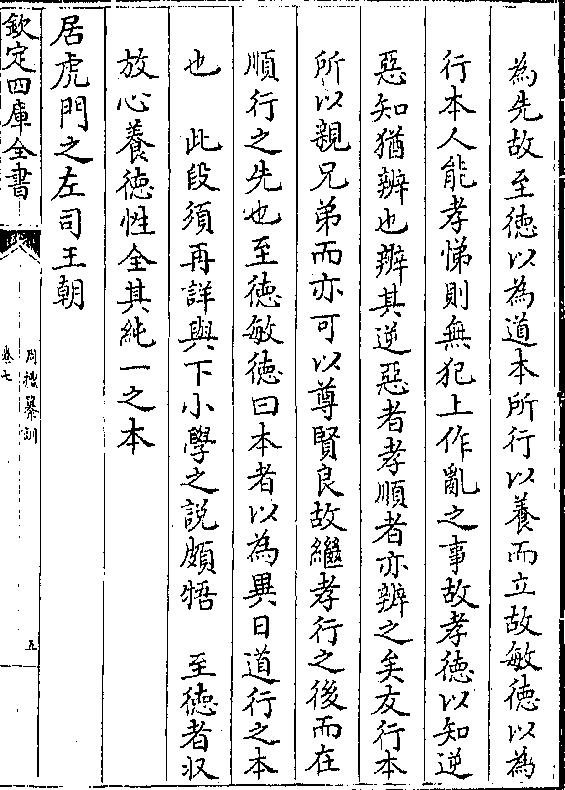 為先故至徳以為道本所行以養而立故敏徳以為
行本人能孝悌則無犯上作亂之事故孝徳以知逆
惡知猶辨也辨其逆惡者孝順者亦辨之矣友行本
所以親兄弟而亦可以尊賢良故繼孝行之後而在
順行之先也至徳敏徳曰本者以為異日道行之本
也　此段須再詳與下小學之説頗牾　至徳者収
放心養徳性全其純一之本
居虎門之左司王朝
欽定四庫全書
周禮纂訓
卷七
五